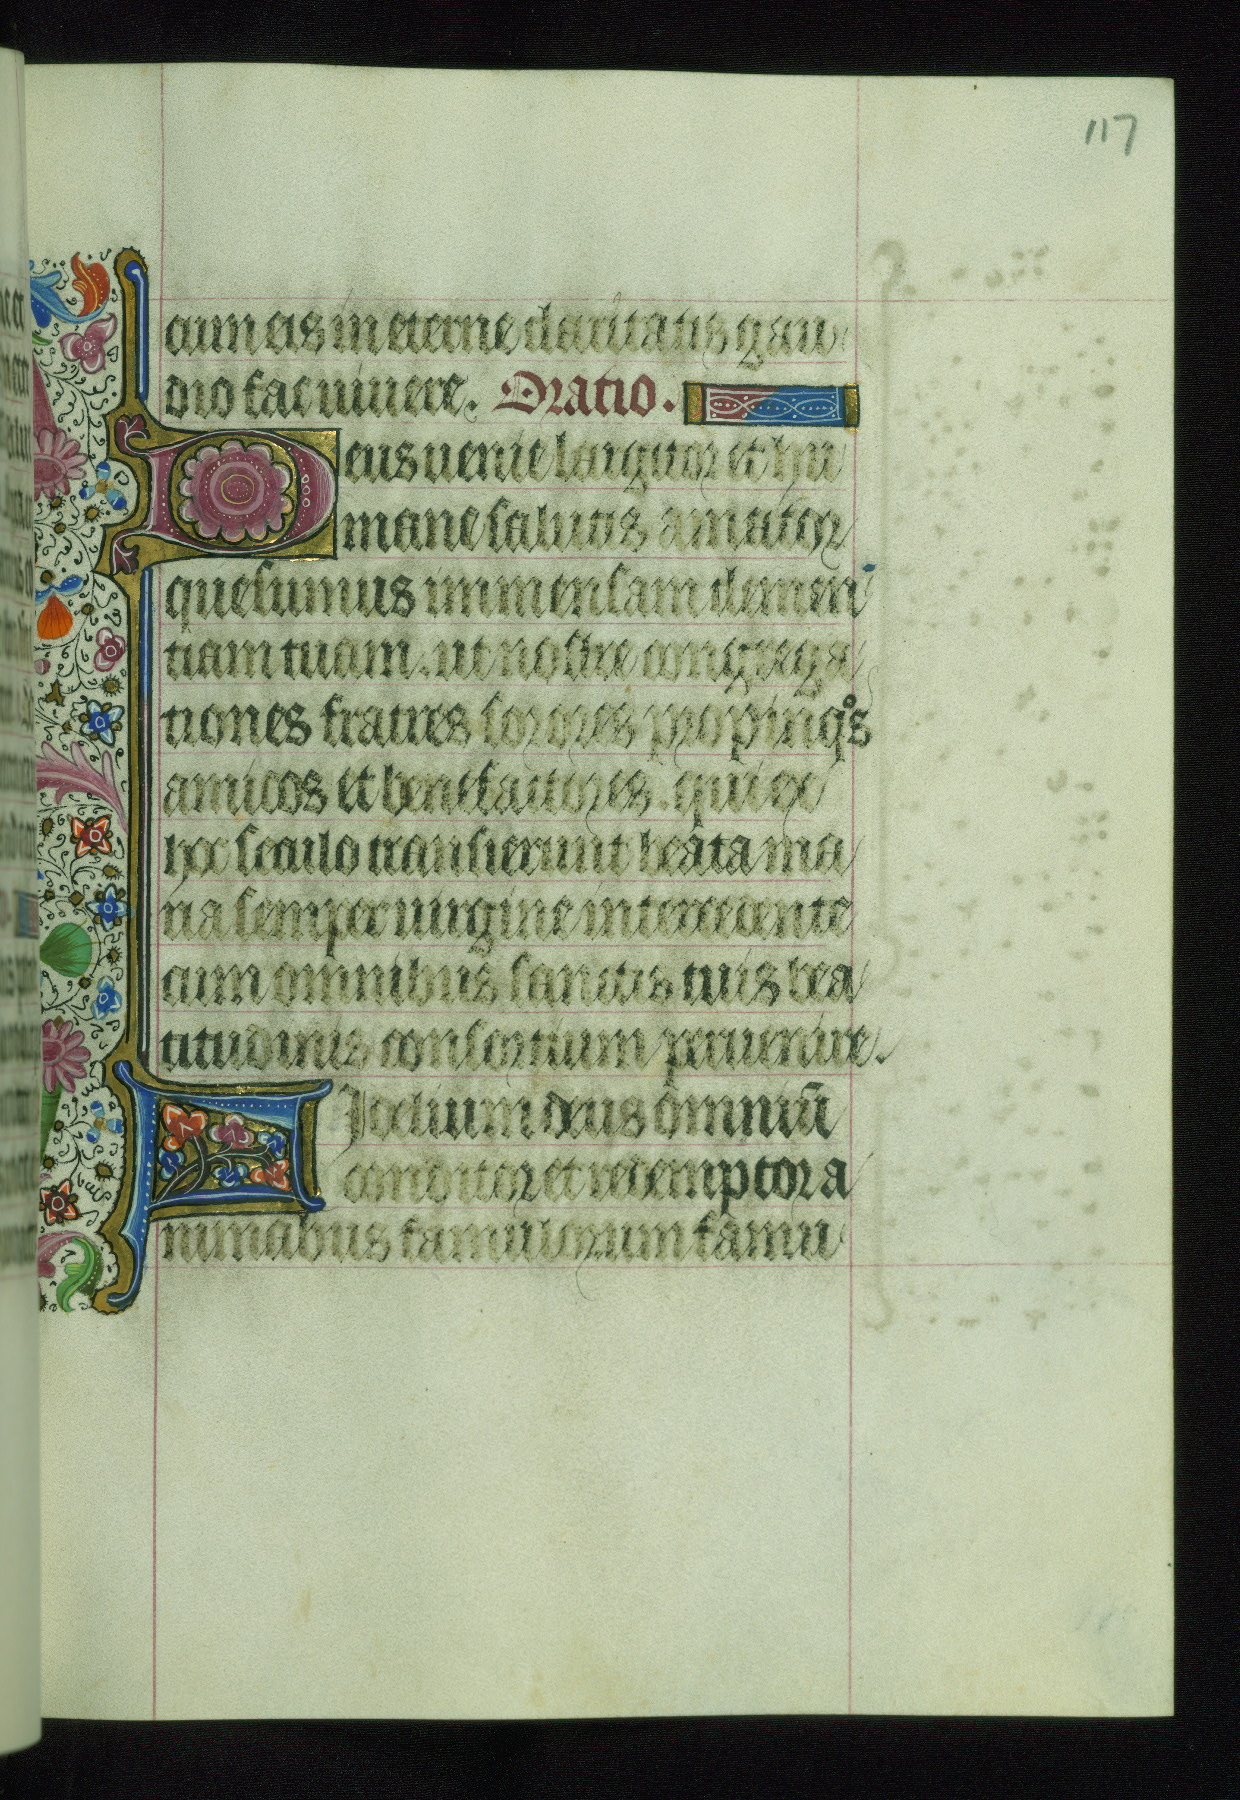 117
cum eis in eterne claritatis gau
dio fac uiuere. Oratio.
Deus uenie largitor et hu
mane salutis amator
quesumus immensam clemen
tiam tuam. ut nostre congrega
tiones fratres sorores propinqͦs
amicos et benefactores. qui ex
hoc seculo transierunt beata ma
ria semper uirgine intercedente
cum omnibus sanctis tuis bea
titudinis consortium peruenire.
Fidelium deus omniū
conditor et redemptor a
nimabus famulorum famu